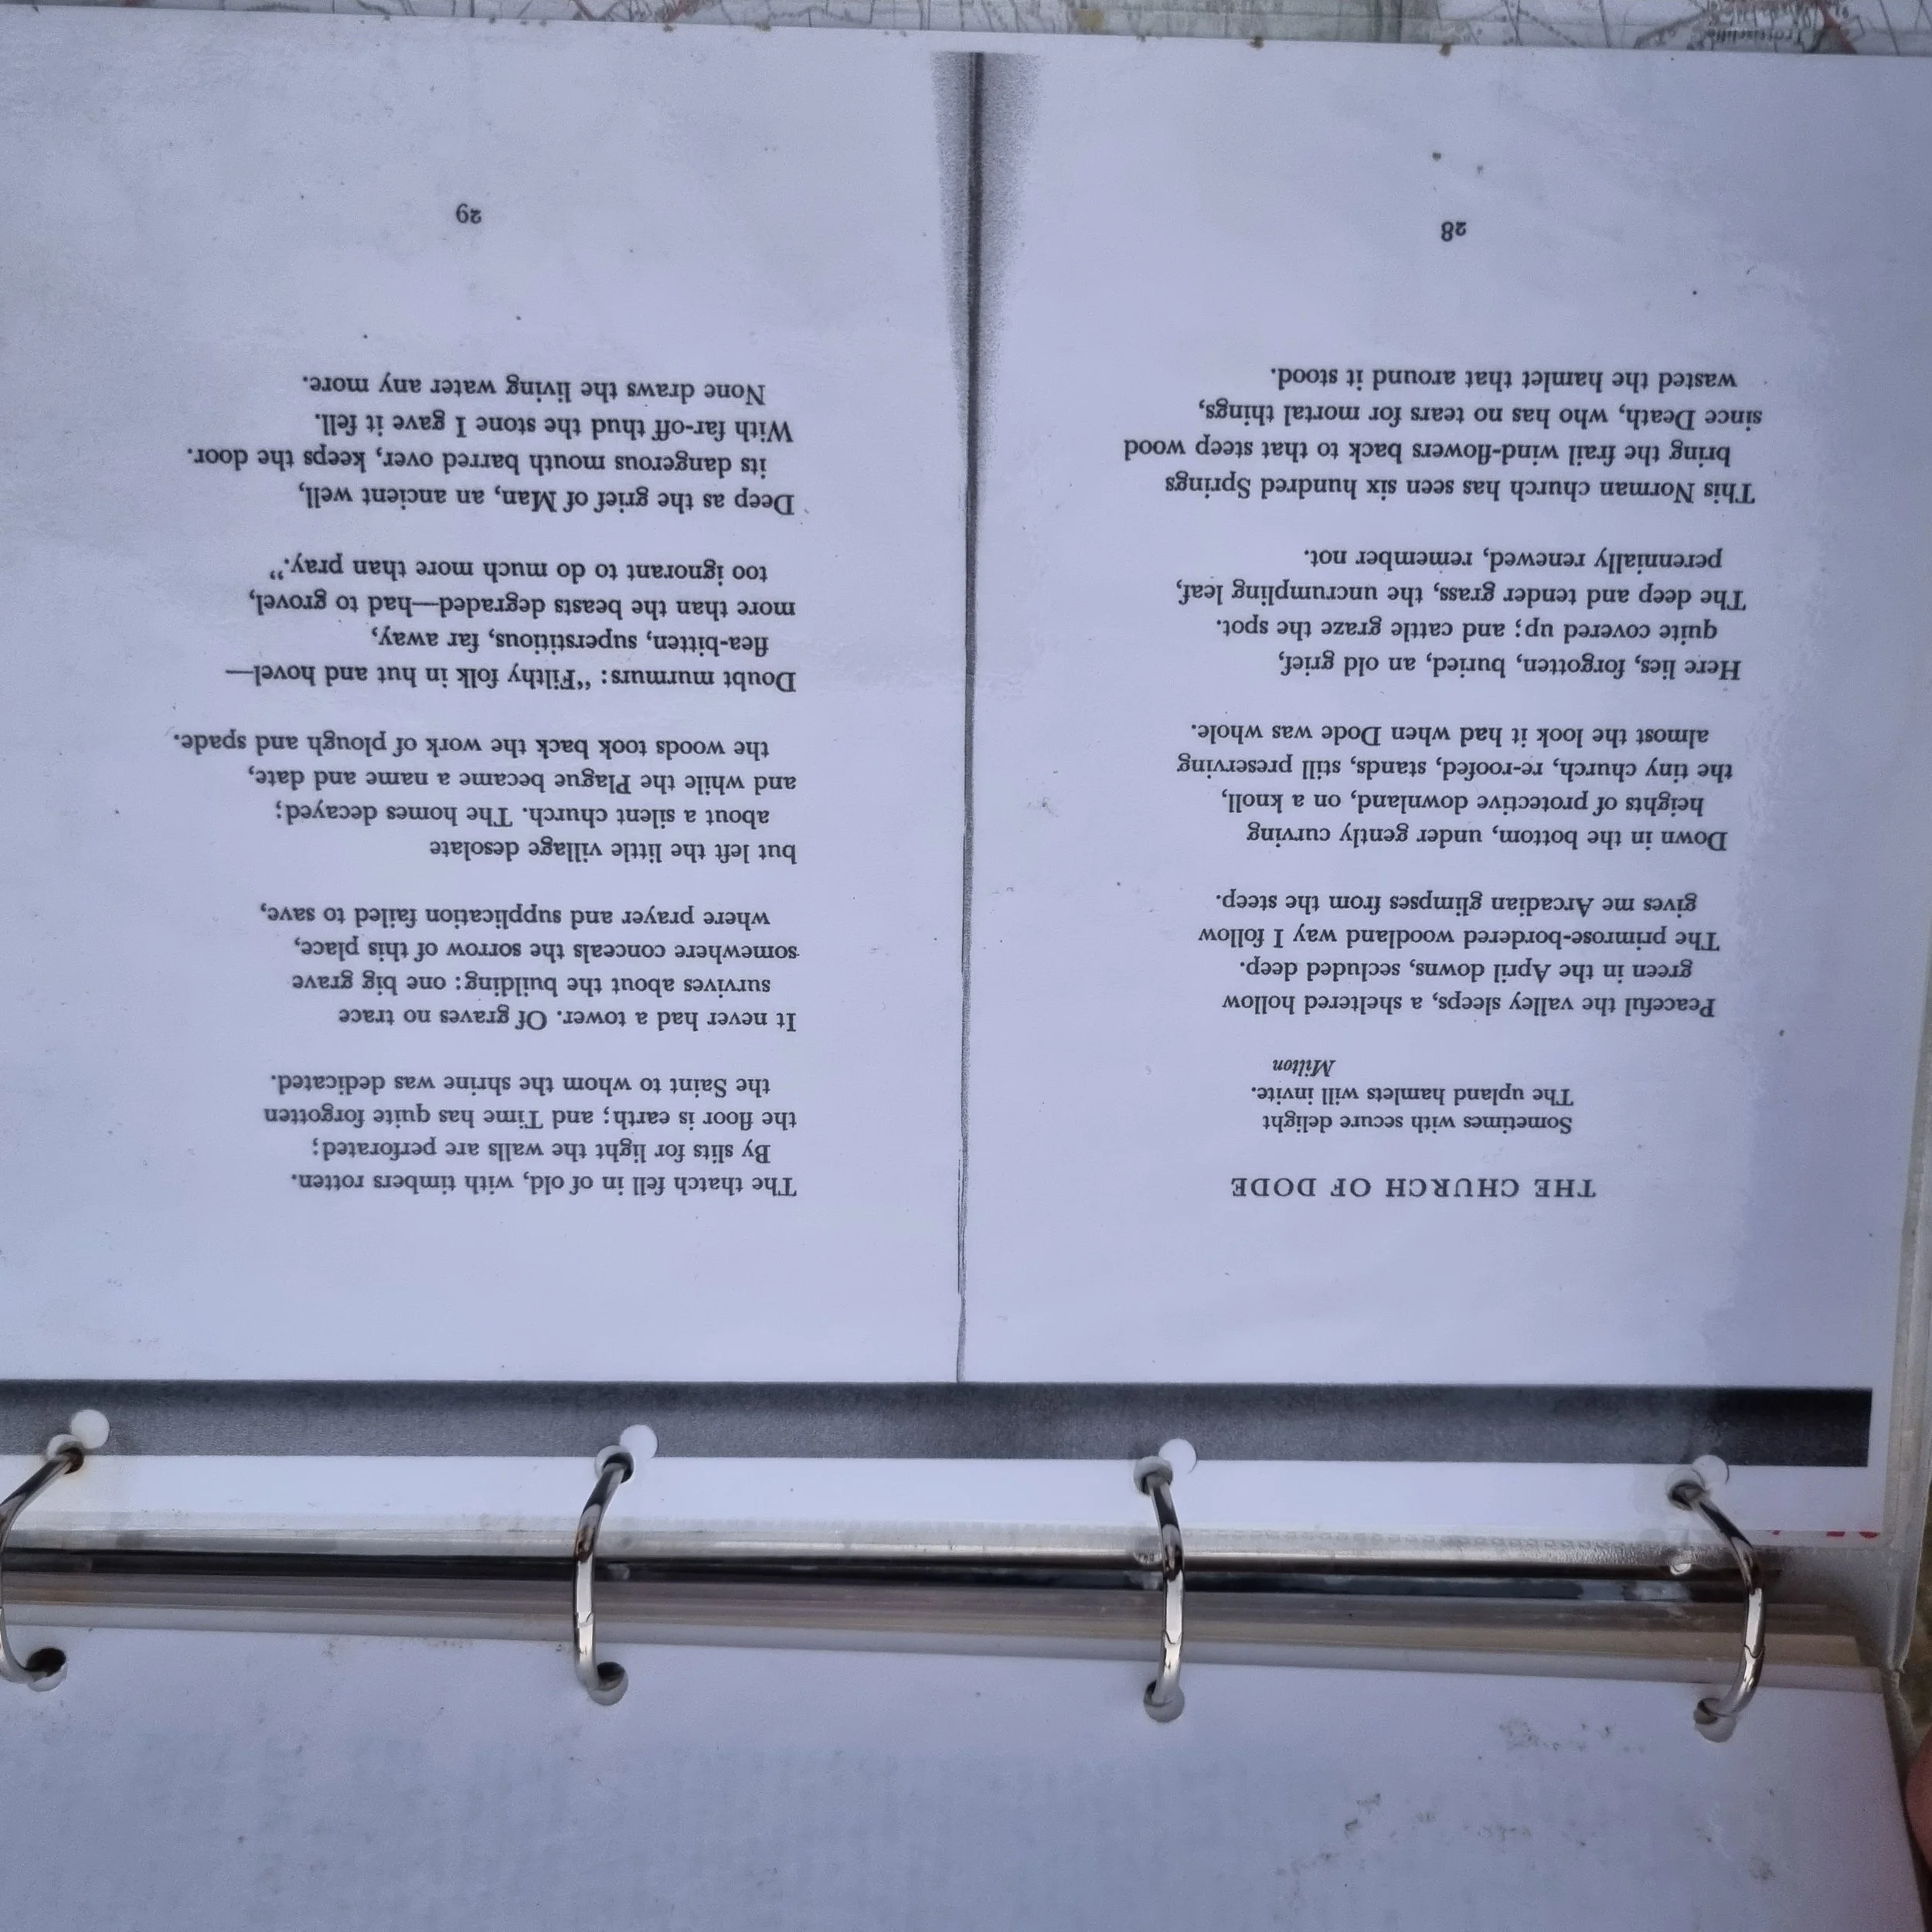 THE CHURCH OF DODE
Sometimes with secure delight
The upland hamlets will invite.
Milton
Peaceful the valley sleeps, a sheltered hollow
green in the April downs, secluded deep.
The primrose-bordered woodland way I follow
gives me Arcadian glimpses from the steep.
Down in the bottom, under gently curving
heights of protective downland, on a knoll,
the tiny church, re-roofed, stands, still preserving
almost the look it had when Dode was whole.
Here lies, forgotten, buried, an old grief,
quite covered up; and cattle graze the spot.
The deep and tender grass, the uncrumpling leaf,
perennially renewed, remember not.
This Norman church has seen six hundred Springs
bring the frail wind-flowers back to that steep wood
since Death, who has no tears for mortal things,
wasted the hamlet that around it stood.
28
The thatch fell in of old, with timbers rotten.
By slits for light the walls are perforated;
the floor is earth; and Time has quite forgotten
the Saint to whom the shrine was dedicated.
It never had a tower. Of graves no trace
survives about the building: one big grave
somewhere conceals the sorrow of this place,
where prayer and supplication failed to save,
but left the little village desolate
about a silent church. The homes decayed;
and while the Plague became a name and date,
the woods took back the work of plough and spade.
Doubt murmurs: “Filthy folk in hut and hovel—
flea-bitten, superstitious, far away,
more than the beasts degraded—had to grovel,
too ignorant to do much more than pray.”
Deep as the grief of Man, an ancient well,
its dangerous mouth barred over, keeps the door.
With far-off thud the stone I gave it fell.
None draws the living water any more.
29